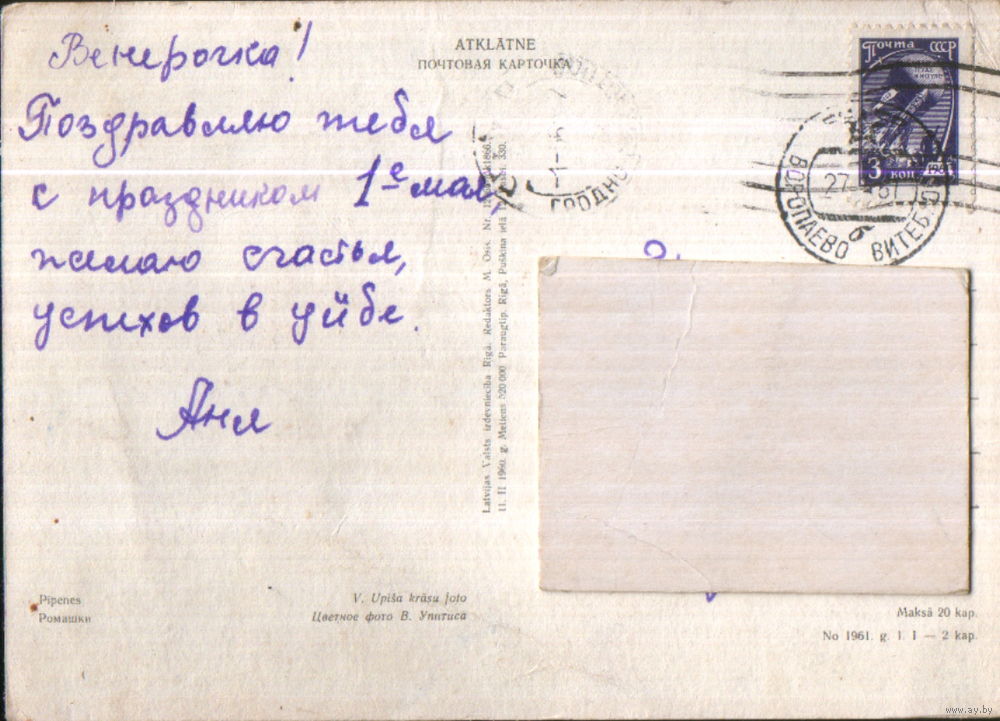 Венерочка!
Поздравляю тебя
с праздником 1е мая,
желаю счастья,
успехов в учёбе.
Аня
ATKLĀTNE
ПОЧТОВАЯ КАРТОЧКА
Почта СССР
3 коп 1961
ВОРОПАЕВО ВИТЕБ
27
б
ГРОДНО
Latvijas Valsts izdevniecība Rīgā. Redaktors M. Osis. Nr.
11. II 1960. g. Metiens 520 000 Paraugtip. Rīgā, Puškina ielā 330.
Pīpenes
Ромашки
V. Upīša krāsu foto
Цветное фото В. Упитиса
Maksā 20 kap.
No 1961. g. 1. I — 2 kap.
www.ay.by